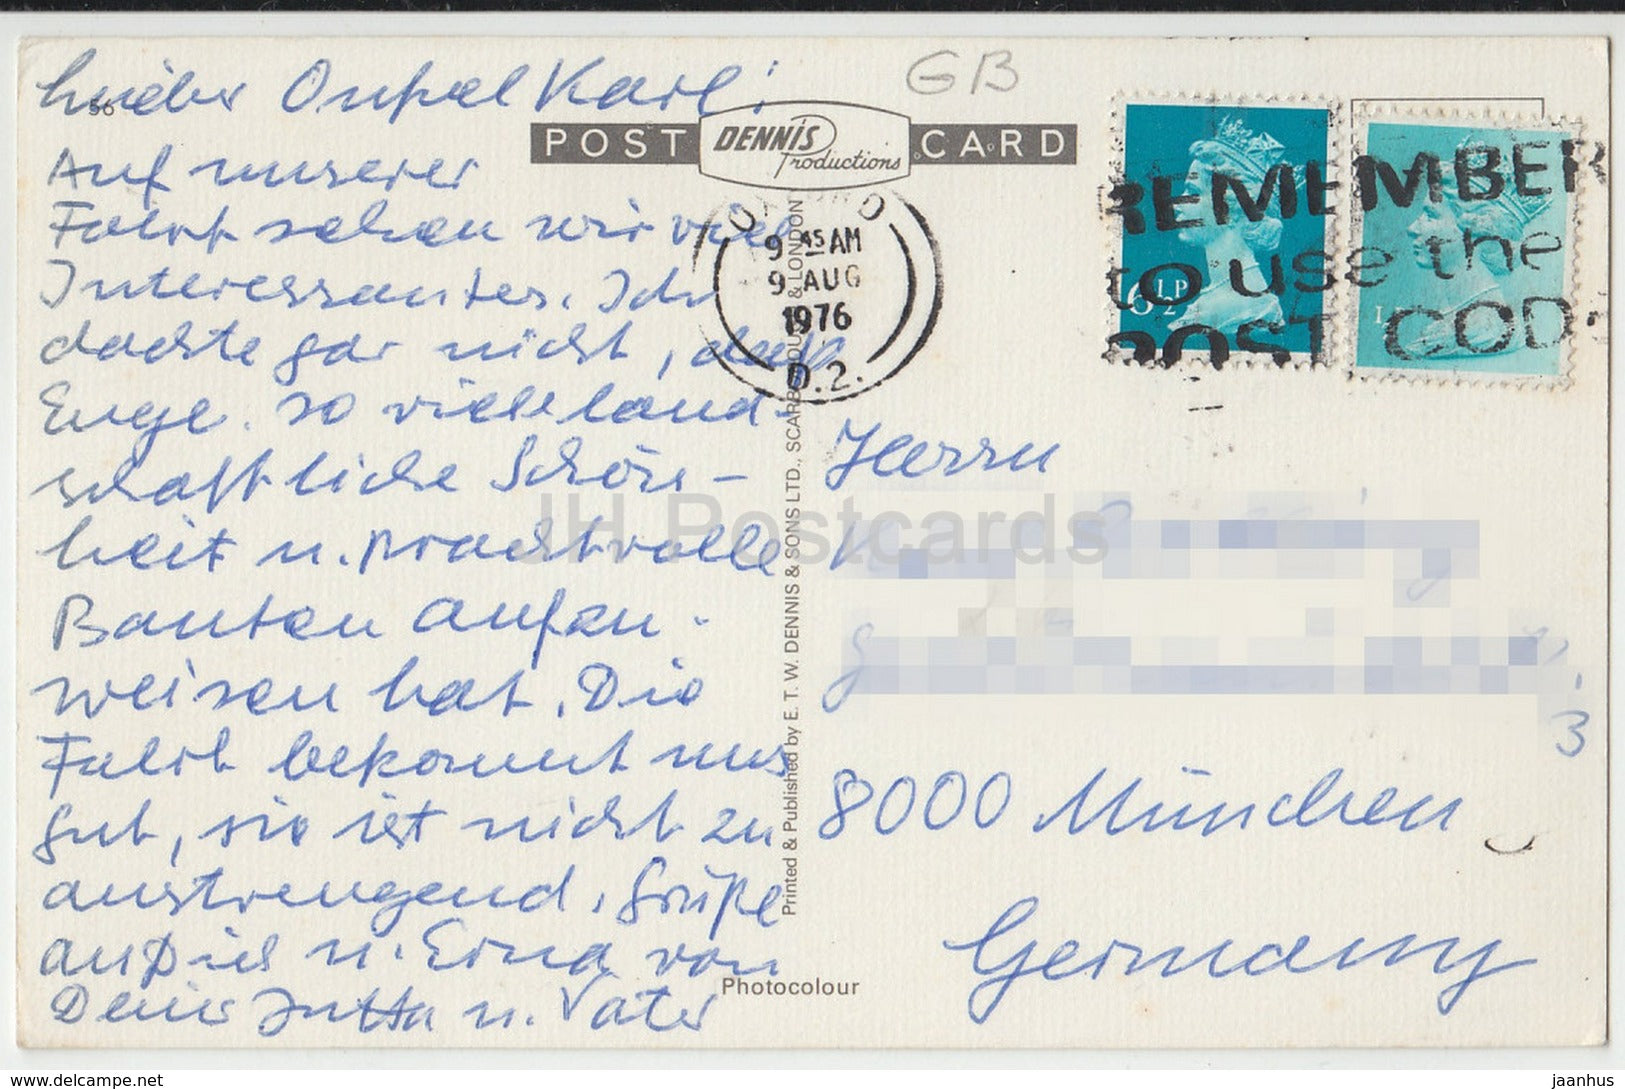 Lieber Onkel Karl!
Auf unserer
Fahrt sehen wir viel
Interessantes. Ich
dachte gar nicht, daß
Engl. so viele land-
schaftliche Schön-
heit u. prachtvolle
Bauten aufzu-
weisen hat. Die
Fahrt bekommt uns
gut, sie ist nicht zu
anstrengend. Grüße
an Dich u. Erna von
Deiner Jutta u. Vater
56
GB
POST DENNIS Productions CARD
9 45 AM
9 AUG
1976
D.2.
REMEMBER
to use the
POST CODE
6½P
Printed & Published by E. T. W. DENNIS & SONS LTD., SCARBOROUGH & LONDON
Photocolour
Herrn
3
8000 München
Germany
JH Postcards
www.delcampe.net
jaanhus